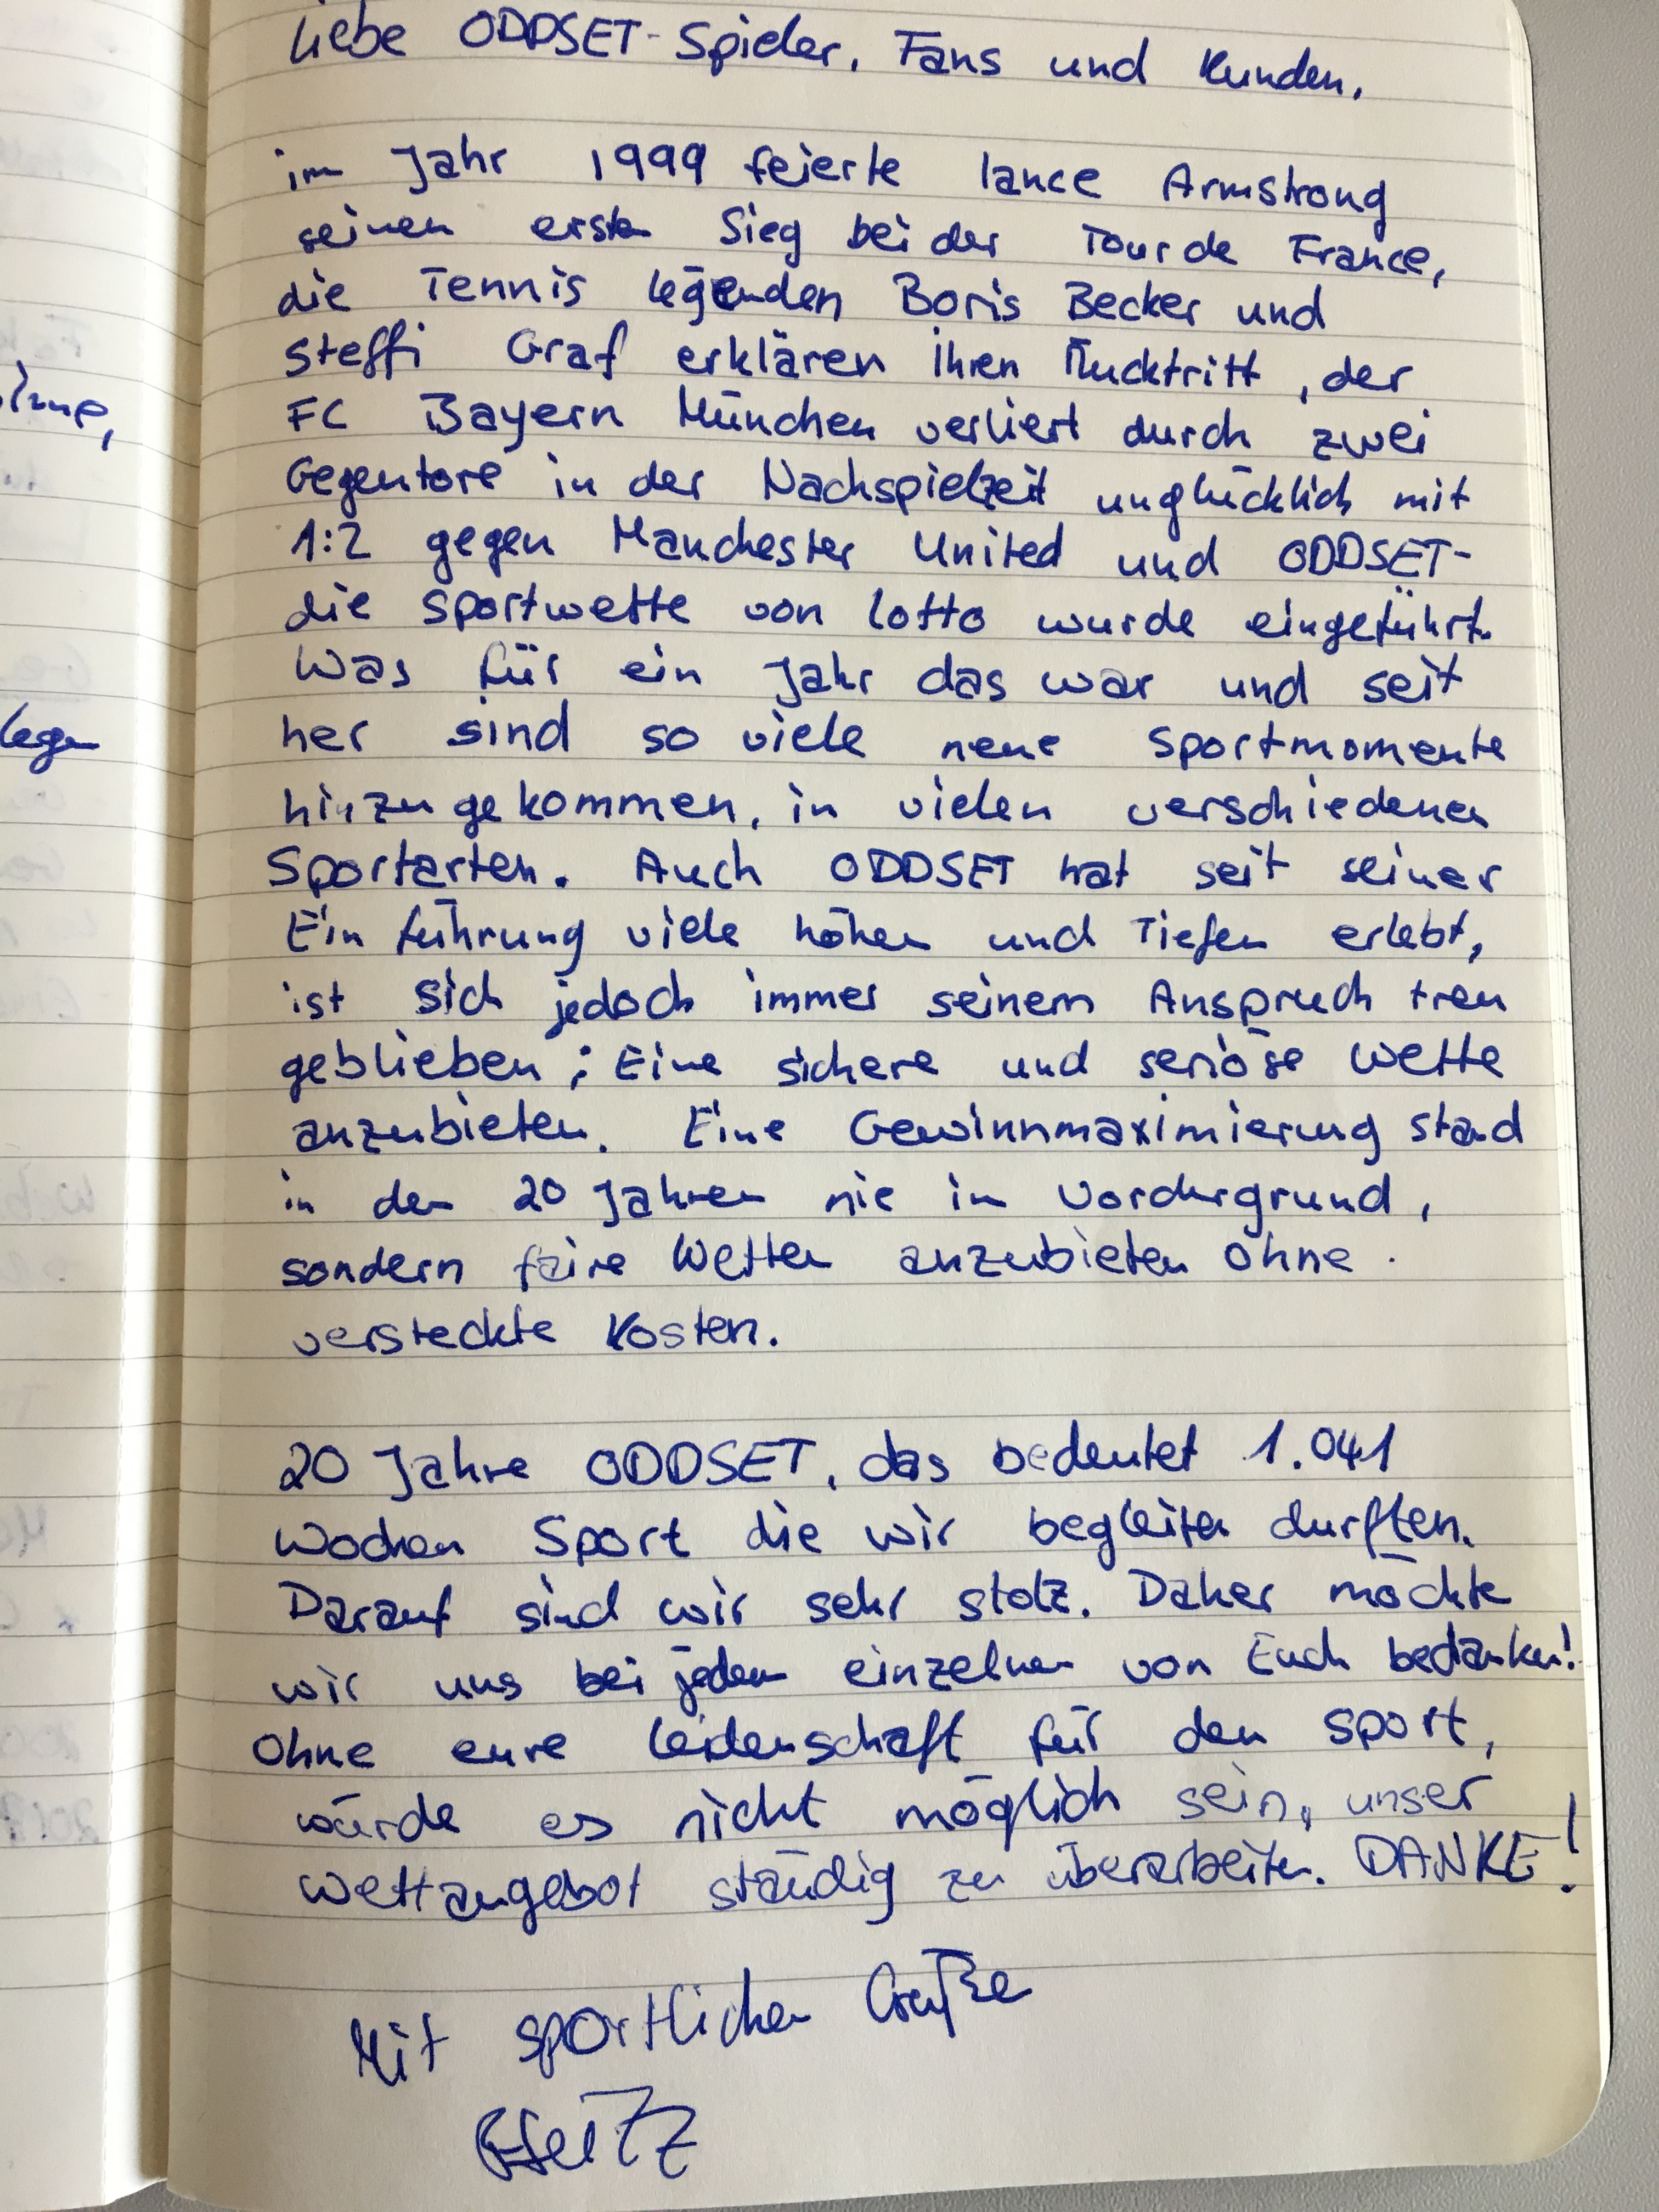 Liebe ODDSET-Spieler, Fans und Kunden,
im Jahr 1999 feierte Lance Armstrong
seinen ersten Sieg bei der Tour de France,
die Tennis legenden Boris Becker und
Steffi Graf erklären ihren Rücktritt, der
FC Bayern München verliert durch zwei
Gegentore in der Nachspielzeit unglücklich mit
1:2 gegen Manchester United und ODDSET-
die Sportwette von Lotto wurde eingeführt.
Was für ein Jahr das war und seit
her sind so viele neue Sportmomente
hinzugekommen, in vielen verschiedenen
Sportarten. Auch ODDSET hat seit seiner
Einführung viele höhen und Tiefen erlebt,
ist sich jedoch immer seinem Anspruch treu
geblieben; Eine sichere und seriöse Wette
anzubieten. Eine Gewinnmaximierung stand
in den 20 Jahren nie im Vordergrund,
sondern faire Wetten anzubieten ohne
versteckte Kosten.
20 Jahre ODDSET, das bedeutet 1.041
Wochen Sport die wir begleiten durften.
Darauf sind wir sehr stolz. Daher möchte
wir uns bei jedem einzelnen von Euch bedanken!
Ohne eure Leidenschaft für den Sport,
würde es nicht möglich sein, unser
Wettangebot ständig zu überarbeiten. DANKE!
Mit sportlichen Grüße